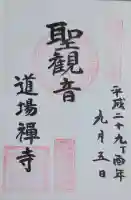 平成二十九丁酉年
九月五日
聖観音
道場禅寺